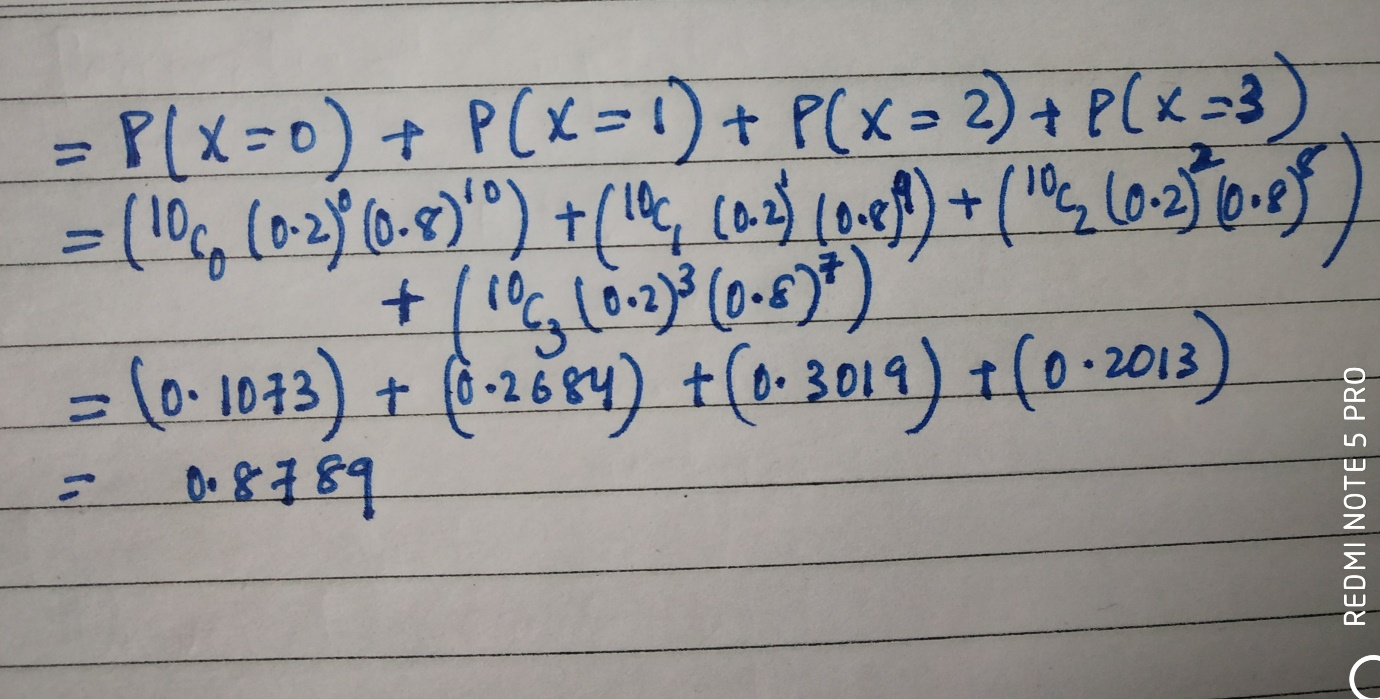 = P(X=0) + P(X=1) + P(X=2) + P(X=3)
= (¹⁰C₀ (0.2)⁰ (0.8)¹⁰) + (¹⁰C₁ (0.2)¹ (0.8)⁹) + (¹⁰C₂ (0.2)² (0.8)⁸)
+ (¹⁰C₃ (0.2)³ (0.8)⁷)
= (0.1073) + (0.2684) + (0.3019) + (0.2013)
= 0.8789
REDMI NOTE 5 PRO